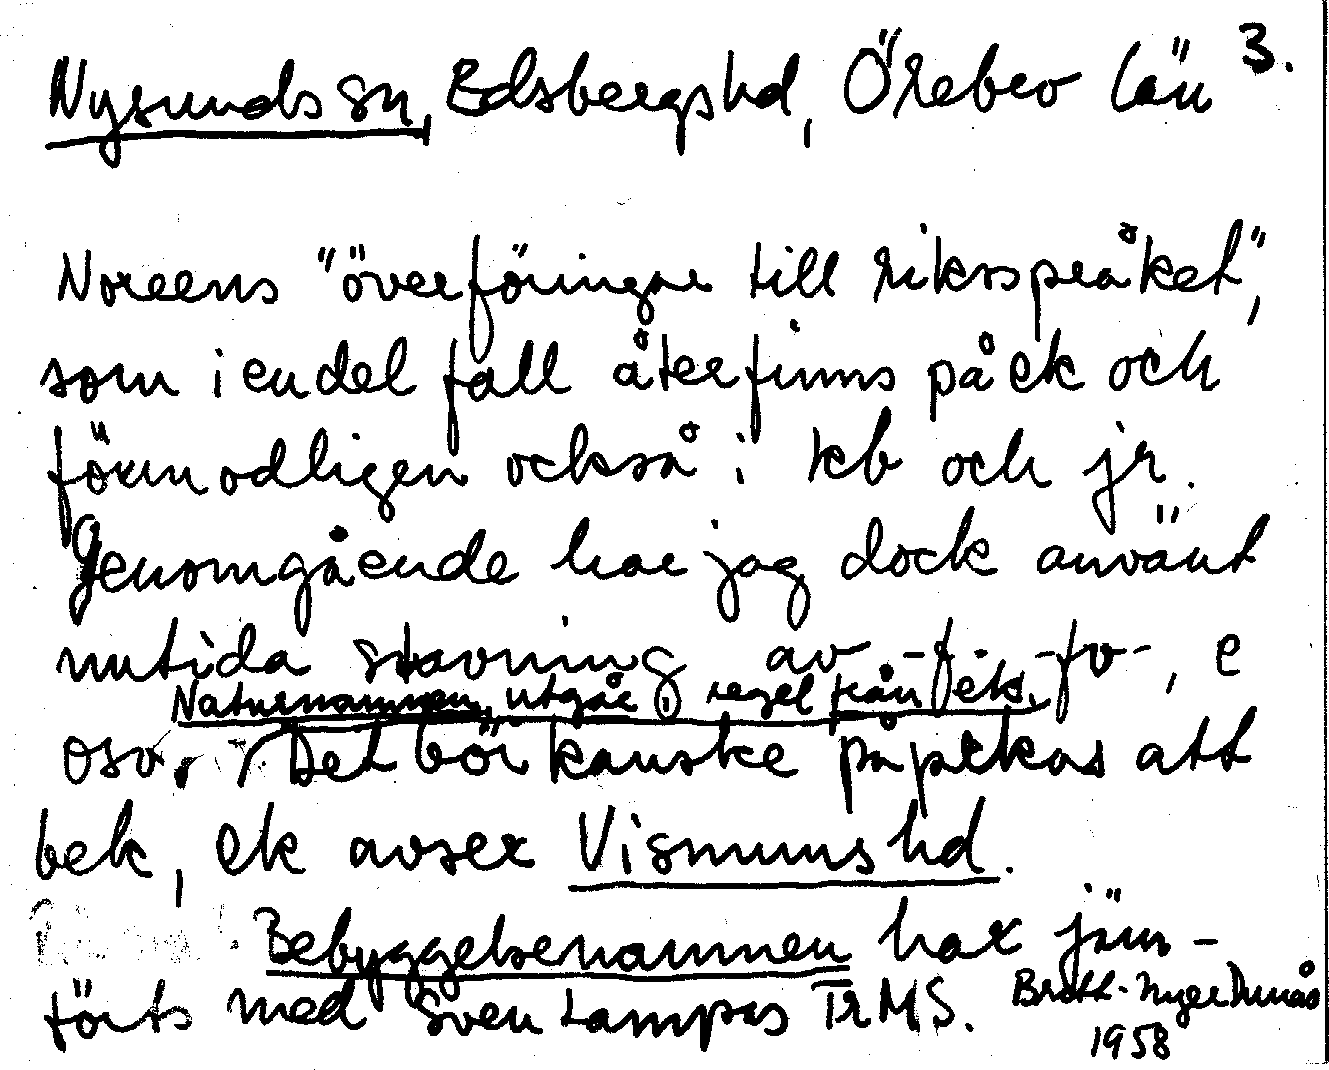 3.
Nysunds sn, Edsbergs hd, Örebro län
Noreens "överföringar till riksspråket",
som i en del fall återfinns på ek och
förmodligen också i kb och jr.
Genomgående har jag dock använt
nutida stavning av -f-, -fv-, e
Naturnamnen utgår i regel från ek.
osv. Det bör kanske påpekas att
bek, ek avser Vismums hd.
Bebyggelsenamnen har jäm-
förts med Sven Lampas TrMS.
Britt-Inger Dunås
1958